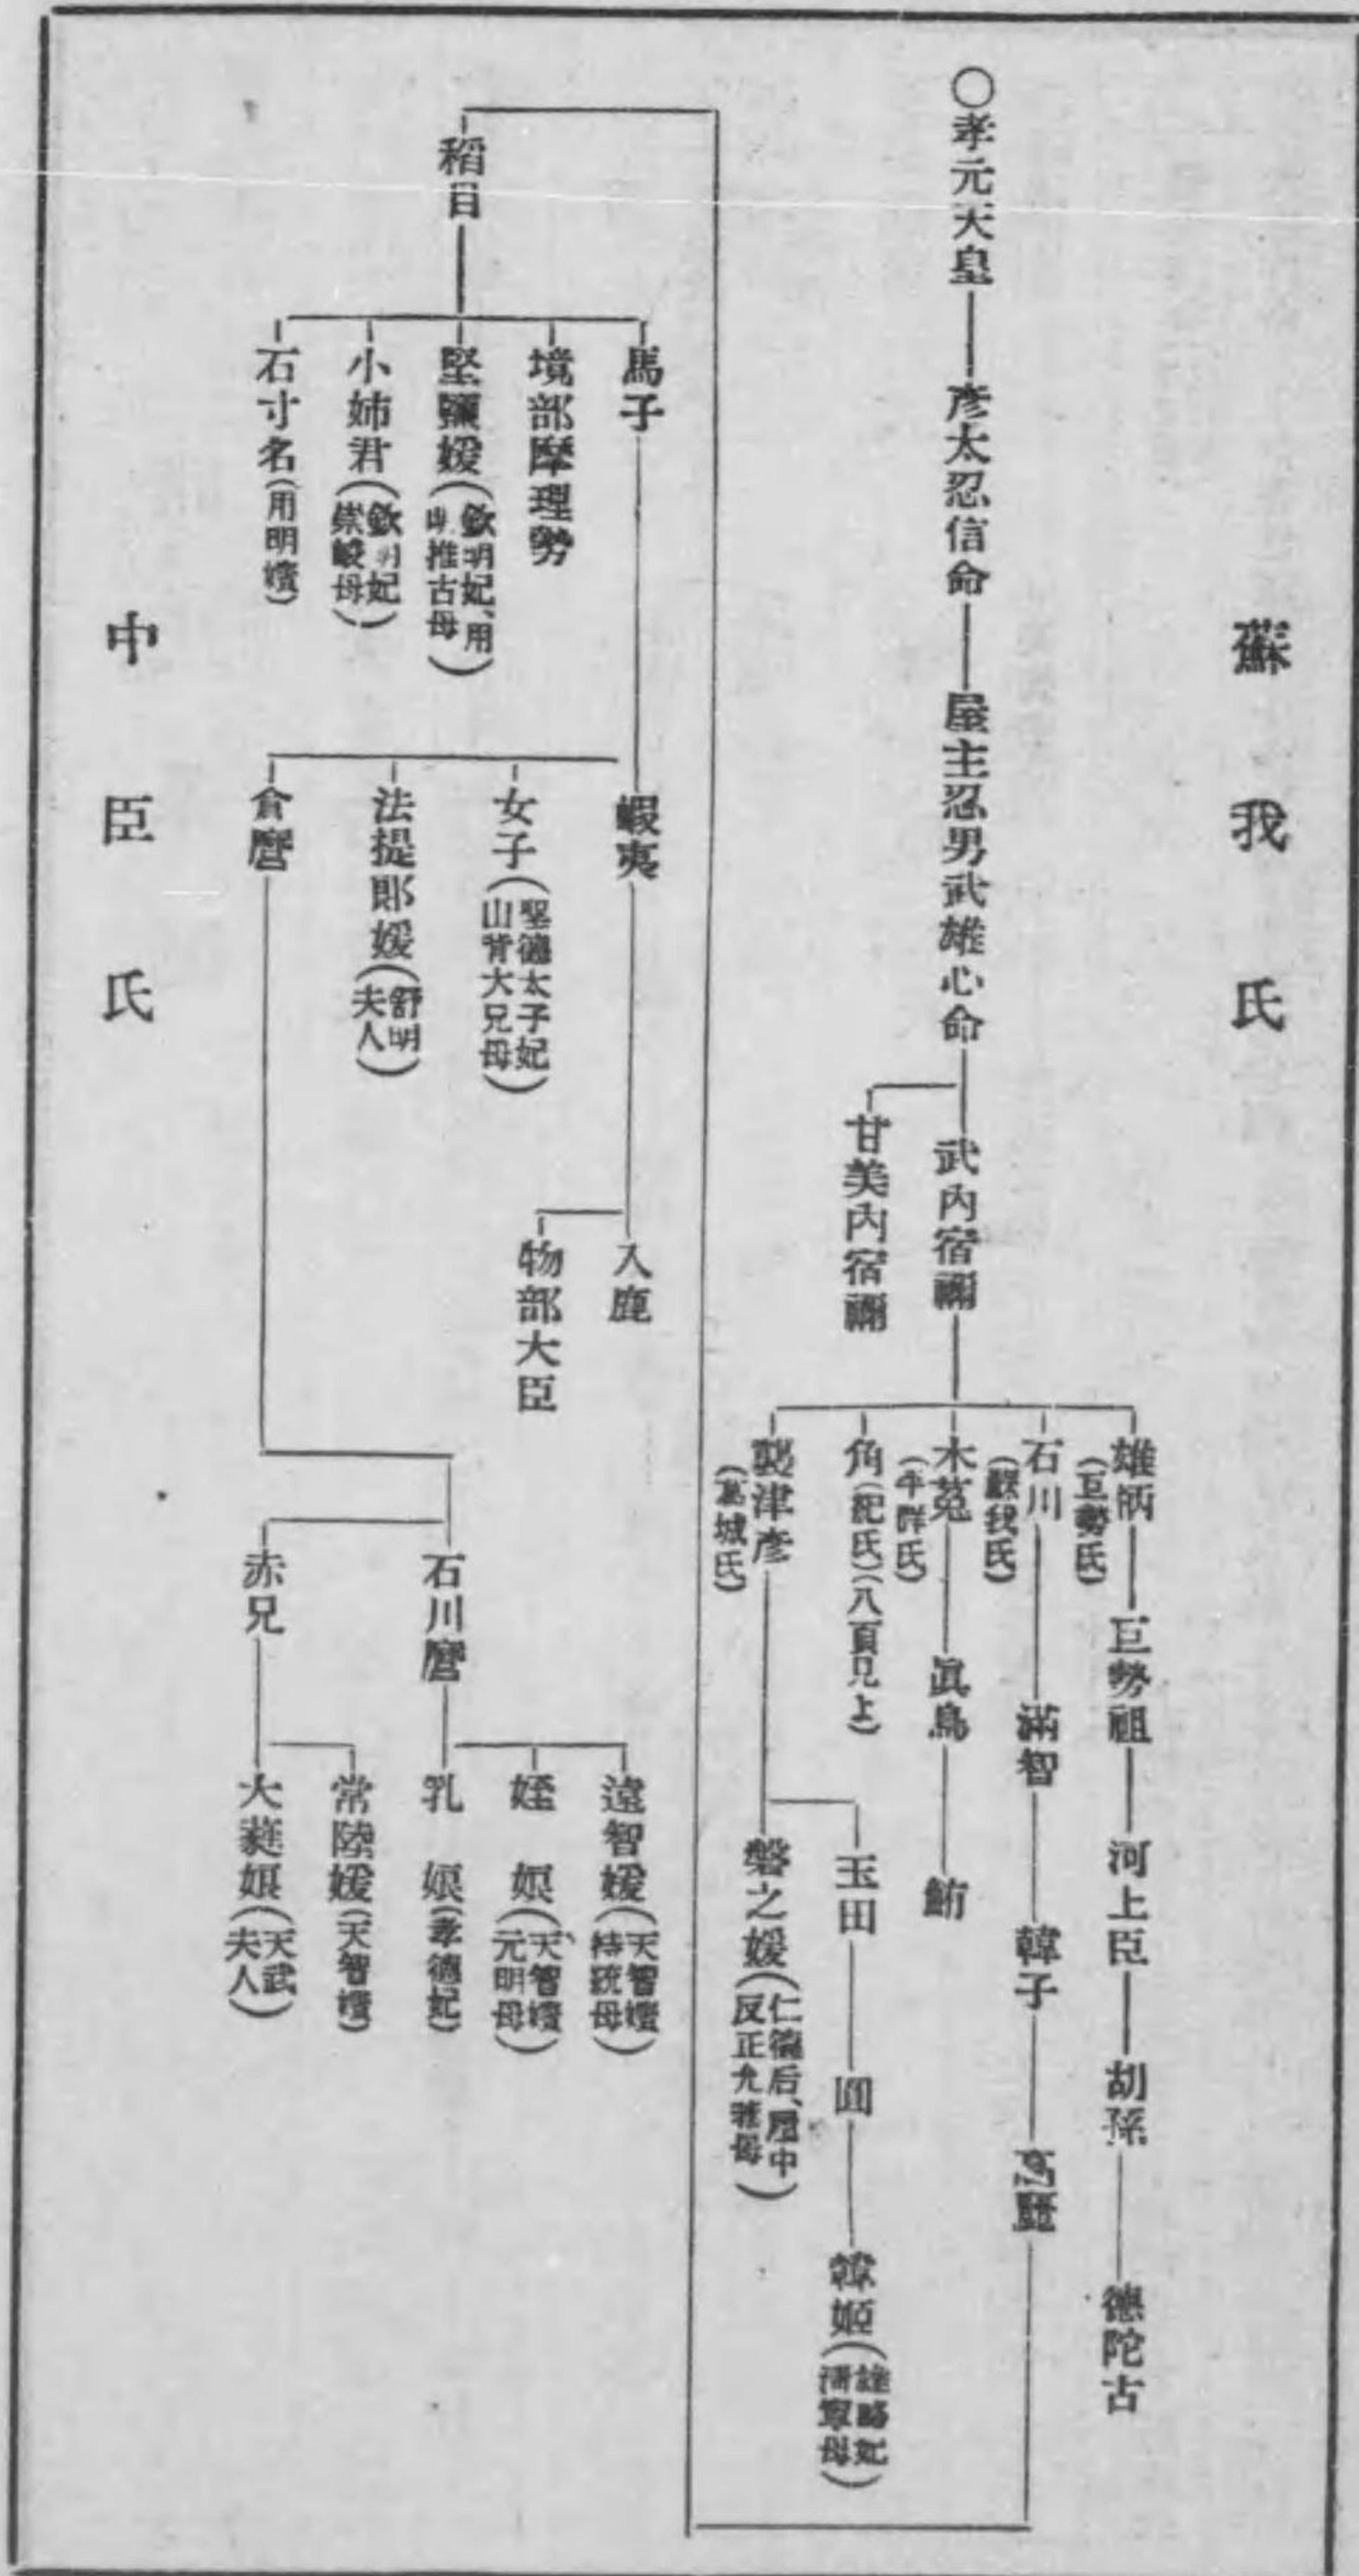 蘇我氏
○孝元天皇
彦太忍信命
屋主忍男武雄心命
武內宿禰
甘美內宿禰
雄柄
(巨勢氏)
巨勢祖
河上臣
胡孫
德陀古
石川
(蘇我氏)
滿智
韓子
高麗
木菟
(平群氏)
眞鳥
鮪
角(紀氏)(八頁見よ)
襲津彥
(葛城氏)
玉田
圓
韓姬(雄略妃
淸寧母)
磐之媛(仁德后、履中
反正允恭母)
稻目
馬子
境部摩理勢
堅鹽媛(欽明妃、用
明、推古母)
小姉君(欽明妃
崇峻母)
石寸名(用明嬪)
蝦夷
女子(聖德太子妃
山背大兄母)
法提郎媛(舒明
夫人)
倉麿
入鹿
物部大臣
石川麿
赤兄
遠智媛(天智嬪
持統母)
姪 娘(天智嬪、
元明母)
乳 娘(孝德妃)
常陸媛(天智嬪)
大蕤娘(天武
夫人)
中臣氏